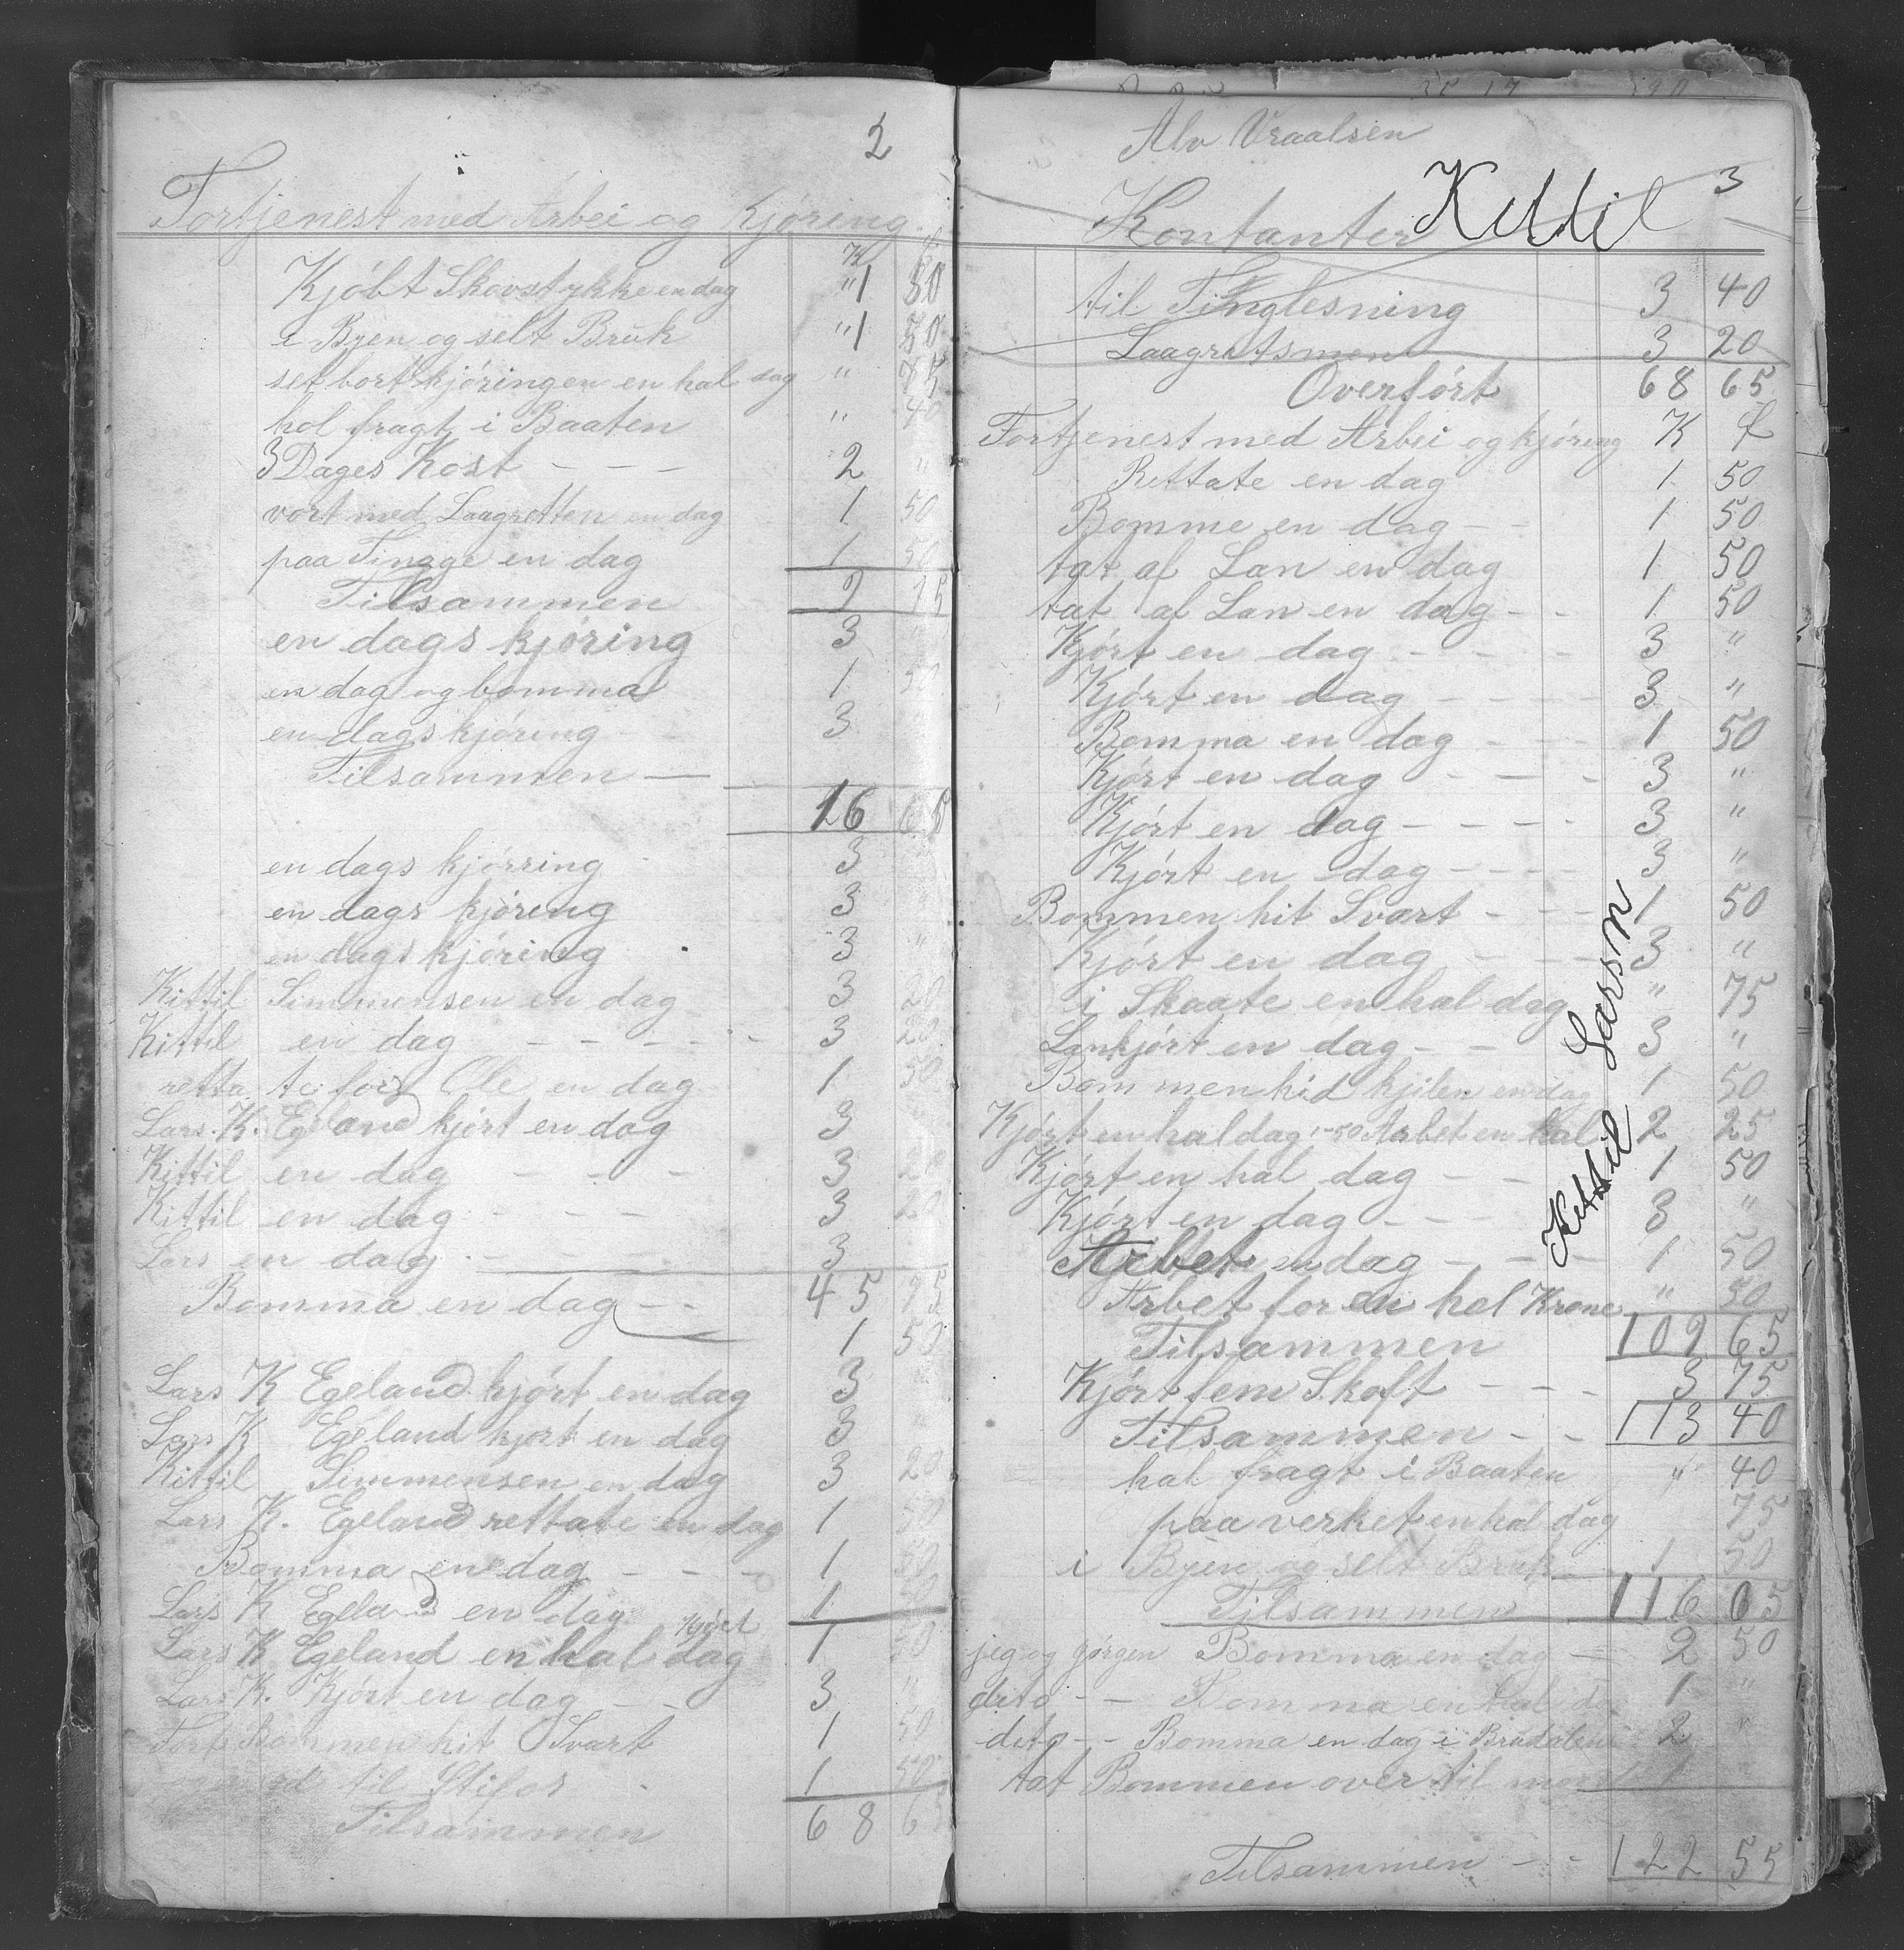 2
Fortjenest med Arbei og Kjøring
K ф
Kjøbt Skovstykke en dag " 1 50
i Byen og selt Bruk " 1 50
set bort kjøringen en hal dag " 75
hol fragt i Baaten " 40
3 Dages Kost - - - 2 "
vort med Laagretten en dag 1 50
paa Tingge en dag 1 50
Tilsammen 9 15
en dags kjøring 3
en dag og bomma 1 50
en dags kjøring - - 3 "
Tilsammen —
16 65
en dags kjørring 3
en dags kjøring 3
en dags kjøring 3 "
Kittil Simmensen en dag 3 20
Kittil en dag - - - - - 3 20
retta te for Ole en dag 1 50
Lars. K. Egeland kjørt en dag 3
Kittil en dag - - - 3 20
Kittil en dag - - - 3 20
Lars en dag - - - 3
45 95
Bomma en dag - - 1 50
Lars K Egeland kjørt en dag 3
Lars K Egeland kjørt en dag 3 "
Kittil Simmensen en dag 3 20
Lars K. Egeland rettate en dag 1 50
Bomma en dag - - - 1 50
Lars K Egeland en dag 1 50
Lars K Egeland en hal dag kjørt 1 50
Lars K. Kjørt en dag - - 3 "
Bommen hit Svart 1 50
til Stifos 1 50
Tilsammen 68 65
Alv Vraalsen
3
Kontanter Kittil
til Tinglesning 3 40
Laagretsmen 3 20
Overført 68 65
Fortjenest med Arbei og kjøring K ф
Rettate en dag 1 50
Bomme en dag - - 1 50
tat af Lan en dag 1 50
tat af Lan en dag - - 1 50
Kjørt en dag - - - - 3 "
Kjørt en dag - - - - 3 "
Bomma en dag - - - 1 50
Kjørt en dag - - - - 3 "
Kjørt en dag - - - - 3 "
Kjørt en dag - - - - 3 "
Bommen hit Svart - - - 1 50
Kjørt en dag - - - 3 "
i Skaate en hal dag " 75
Lankjørt en dag - - 3 "
Bommen hid kjilen en dag 1 50
Kjørt en hal dag 1-50 Arbet en hal 2 25
Kjørt en hal dag - - 1 50
Kjørt en dag - - - 3 "
Arbet en dag - - - 1 50
Arbet for en hel Krone " 50
Tilsammen 109 65
Kjørt fem Skoft - - - 3 75
Tilsammen - - 113 40
hal fragt i Baaten " 40
paa verket en hal dag 75
i Byen og selt Bruk 1 50
Tilsammen 116 05
jeg og Jørgen Bomma en dag - 2 50
dito - - Bomma en hal da 1 "
dito - - Bomma en dag i Brudalen 2 "
tat Bommen over til 1
Tilsammen - - 122 55
Kettil Larsn